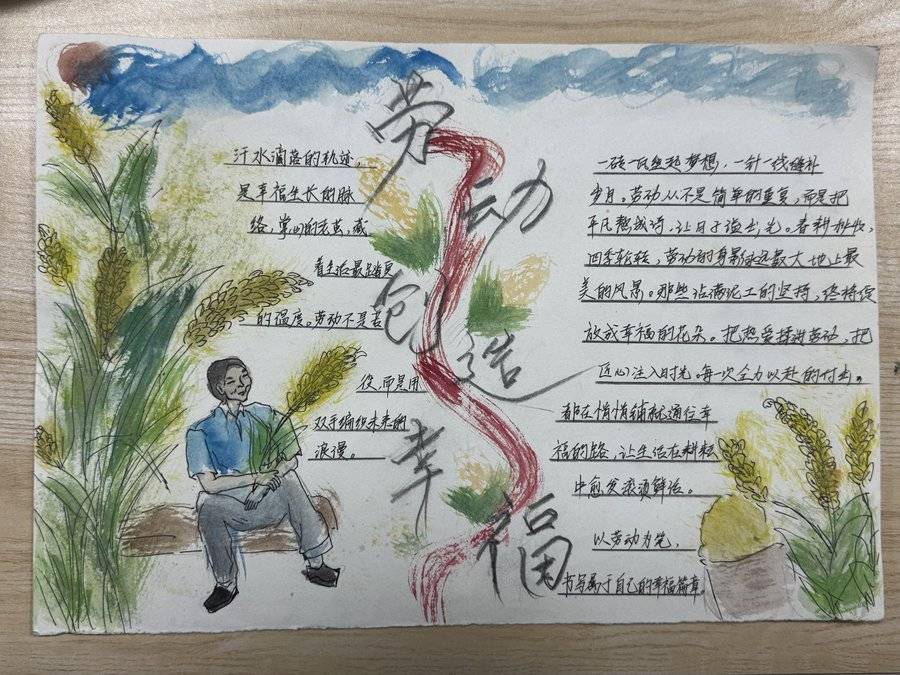 劳动创造幸福
汗水滴落的轨迹，
是幸福生长的脉
络，掌心的老茧，藏
着生活最踏实
的温度。劳动不是苦
役，而是用
双手编织未来的
浪漫。
一砖一瓦垒起梦想，一针一线缝补
岁月。劳动从不是简单的重复，而是把
平凡熬成诗，让日子溢出光。春耕秋收，
四季轮转，劳动的身影永远是大地上最
美的风景。那些沾满泥土的坚持，终将绽
放成幸福的花朵。把热爱揉进劳动，把
匠心注入时光。每一次全力以赴的付出。
都在悄悄铺就通往幸
福的路，让生活在耕耘
中愈发滚烫鲜活。
以劳动为笔，
书写属于自己的幸福篇章。